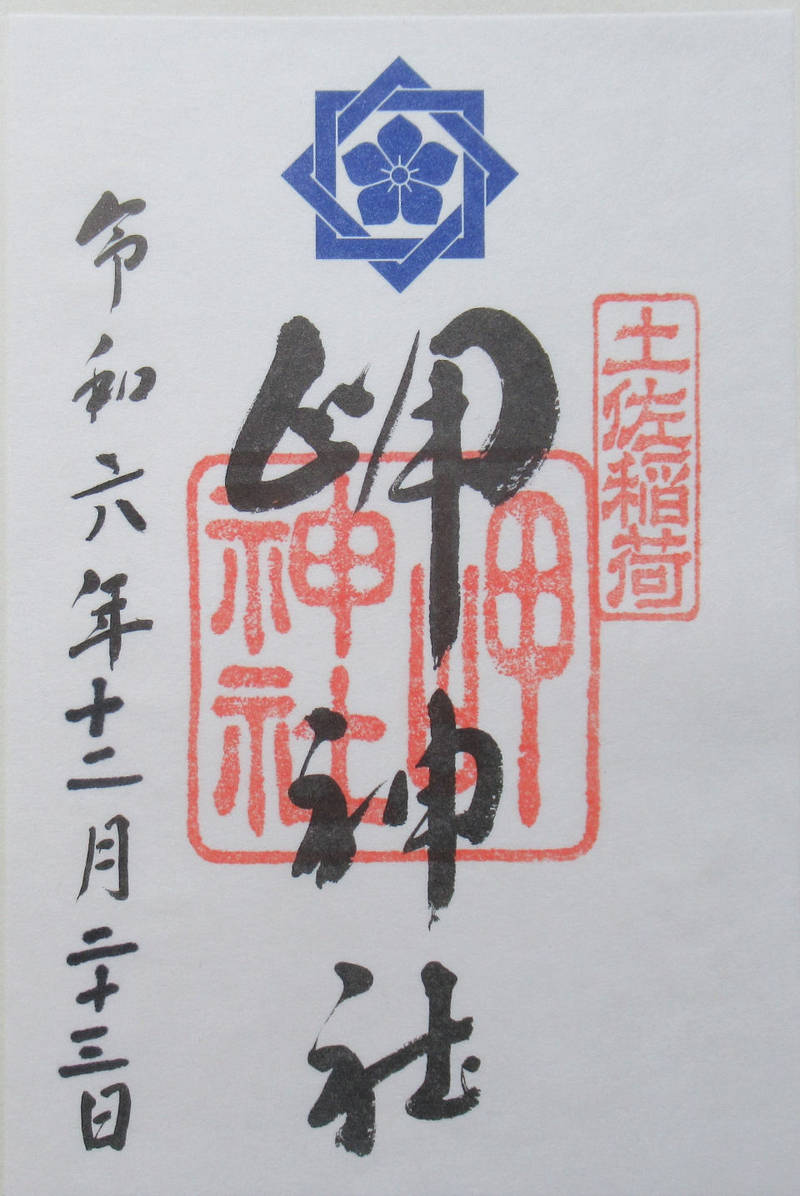 土佐稲荷
岬神社
岬
神社
令和六年十二月二十三日